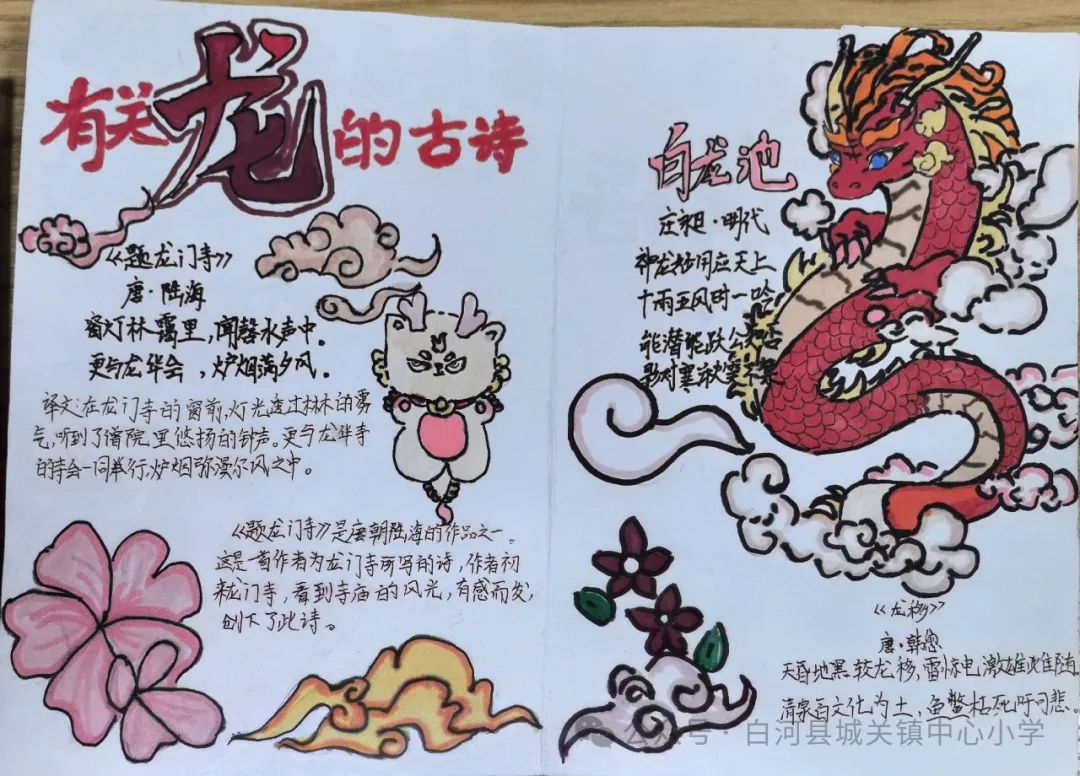 有关龙的古诗
《题龙门寺》
唐·陆海
窗灯林霭里，闻磬水声中。
更与龙华会，炉烟满夕风。
译文：在龙门寺的窗前，灯光透过林的雾
气，听到了僧院里悠扬的钟声。更与龙华寺
的寺会一同举行，炉烟弥漫尔风之中。
《题龙门寺》是唐朝陆海的作品之一。
这是一首作者为龙门寺所写的诗，作者初
来龙门寺，看到寺庙的风光，有感而发，
创下了此诗。
白龙池
庄昶·明代
神龙 用应天上
十雨五风时一吟
能潜能跃公
《龙移》
唐·韩愈
天昏地黑较龙移，雷惊电激雄雌随。
清泉百文化为土，鱼鳖枯死吁可悲。
公众号·白河县城关镇中心小学